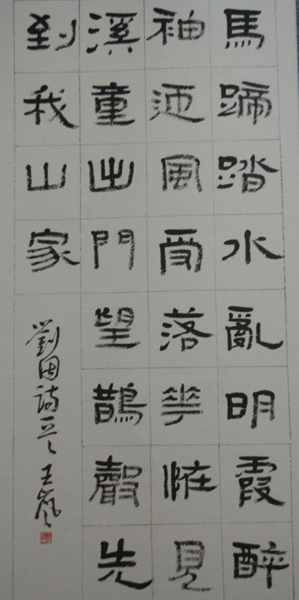 馬蹄踏水亂明霞醉
袖迎風受落花恠見
溪童出門望鵲聲先
到我山家
劉因詩一首 王